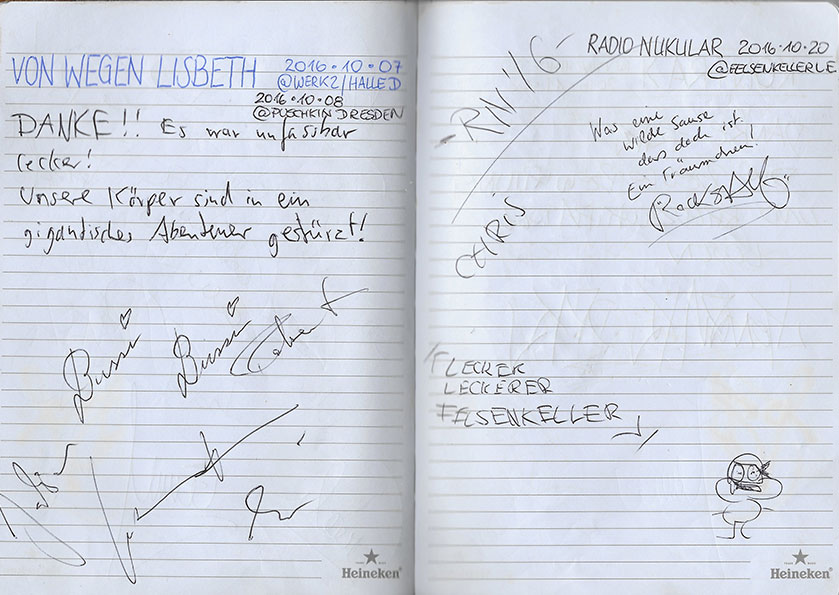 VON WEGEN LISBETH 2016·10·07
@WERK2/HALLE D
2016·10·08
@PUSCHKIN DRESDEN
DANKE!! Es war unfassbar
lecker!
Unsere Körper sind in ein
gigantisches Abenteuer gestürzt!
Bussi
Bussi
Heineken
RADIO NUKULAR 2016·10·20
@FELSENKELLER LE
-RN '16-
Was eine
wilde Sause
das doch ist.
Ein Träumchen!
"Rockstah"
CHRIS
LECKER
LECKERER
FELSENKELLER
Heineken